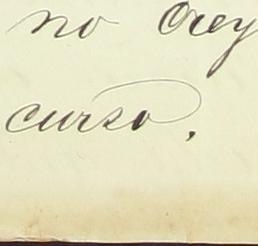 no Orey
curso,